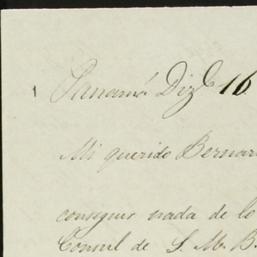 Panamá Dize 16
Mi querido Bernar
conseguir nada de lo
Consul de S. M. B.